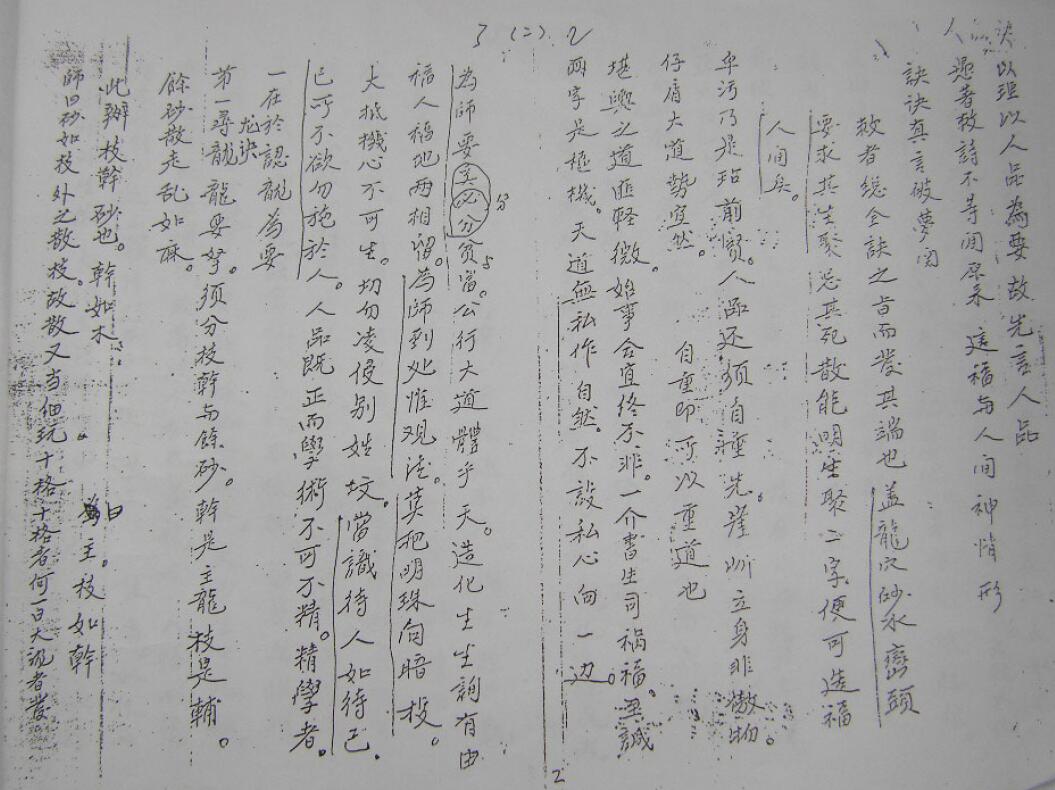 3 (二) 2
訣以理以人品為要故先言人品
人
愚者救詩不等閒原來 造福与人間神情形
訣訣真言破夢関
救者總全訣之旨而發其端也 盖龍穴砂水巒頭
要求其生聚忌其死散能明生聚二字便可造福
人间矣。
卑污乃是玷前贤。人品还须自種先。崖岸立身非傲物。
仔肩大道势宜然。 自重即所以重道也
堪輿之道匪轻微。始事合宜终不非。一介書生司祸福。至誠
两字是枢機。天道無私作自然。不設私心向一边。
為師要 必分贫富。公行大道體乎天。造化生生詢有由
分
福人福地两相留。為師到处惟观法。莫把明珠向暗投。
大抵機心不可生。切勿凌侵别姓坟。當識待人如待己。
已所不欲勿施於人。人品既正而學術不可不精。精學者。
一在於認龍為要
龙诀
第一尋龍龍要孥。须分枝幹与餘砂。幹是主龍枝是輔。
餘砂散走乱如麻。
此辦枝幹砂也。幹如木。 為主。枝如幹
曰
師曰砂如枝外之散枝。故散又当细玩十格十格者何一曰大訣者發
2